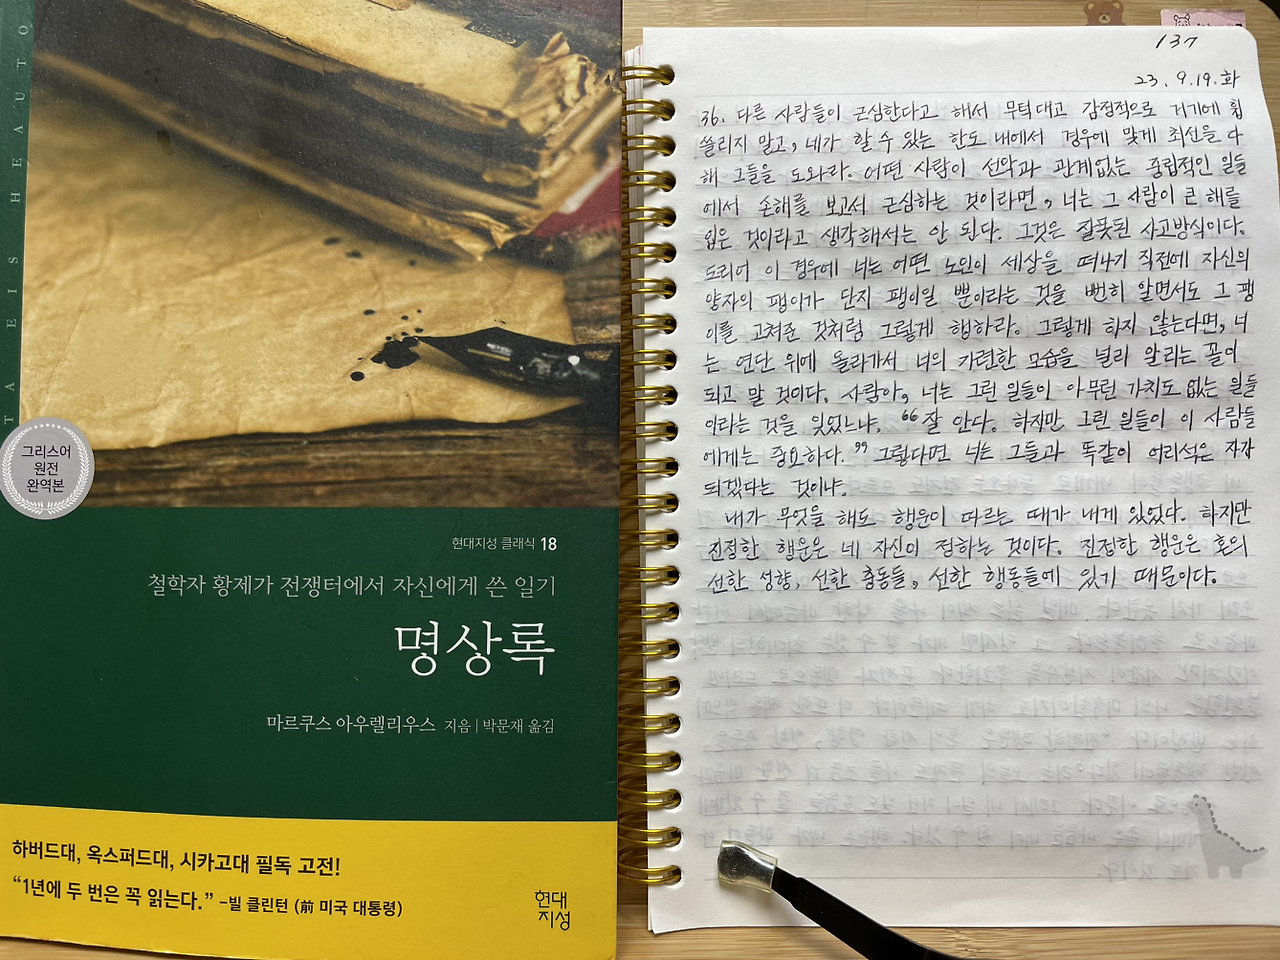 TA EIS HEAUTO
그리스어
원전
완역본
현대지성 클래식 18
철학자 황제가 전쟁터에서 자신에게 쓴 일기
명상록
마르쿠스 아우렐리우스 지음 | 박문재 옮김
하버드대, 옥스퍼드대, 시카고대 필독 고전!
“1년에 두 번은 꼭 읽는다.” –빌 클린턴 (前 미국 대통령)
현대
지성
137
23. 9. 19. 화
36. 다른 사람들이 근심한다고 해서 무턱대고 감정적으로 거기에 휩
쓸리지 말고, 네가 할 수 있는 한도 내에서 경우에 맞게 최선을 다
해 그들을 도와라. 어떤 사람이 선악과 관계없는 중립적인 일들
에서 손해를 보고서 근심하는 것이라면, 너는 그 사람이 큰 해를
입은 것이라고 생각해서는 안 된다. 그것은 잘못된 사고방식이다.
도리어 이 경우에 너는 어떤 노인이 세상을 떠나기 직전에 자신의
양자의 팽이가 단지 팽이일 뿐이라는 것을 뻔히 알면서도 그 팽
이를 고쳐준 것처럼 그렇게 행하라. 그렇게 하지 않는다면, 너
는 연단 위에 올라가서 너의 가련한 모습을 널리 알리는 꼴이
되고 말 것이다. 사람아, 너는 그런 일들이 아무런 가치도 없는 일들
이라는 것을 잊었느냐. “잘 안다. 하지만 그런 일들이 이 사람들
에게는 중요하다.” 그렇다면 너는 그들과 똑같이 어리석은 자가
되겠다는 것이냐.
내가 무엇을 해도 행운이 따르는 때가 내게 있었다. 하지만
진정한 행운은 네 자신이 정하는 것이다. 진정한 행운은 혼의
선한 성향, 선한 충동들, 선한 행동들에 있기 때문이다.